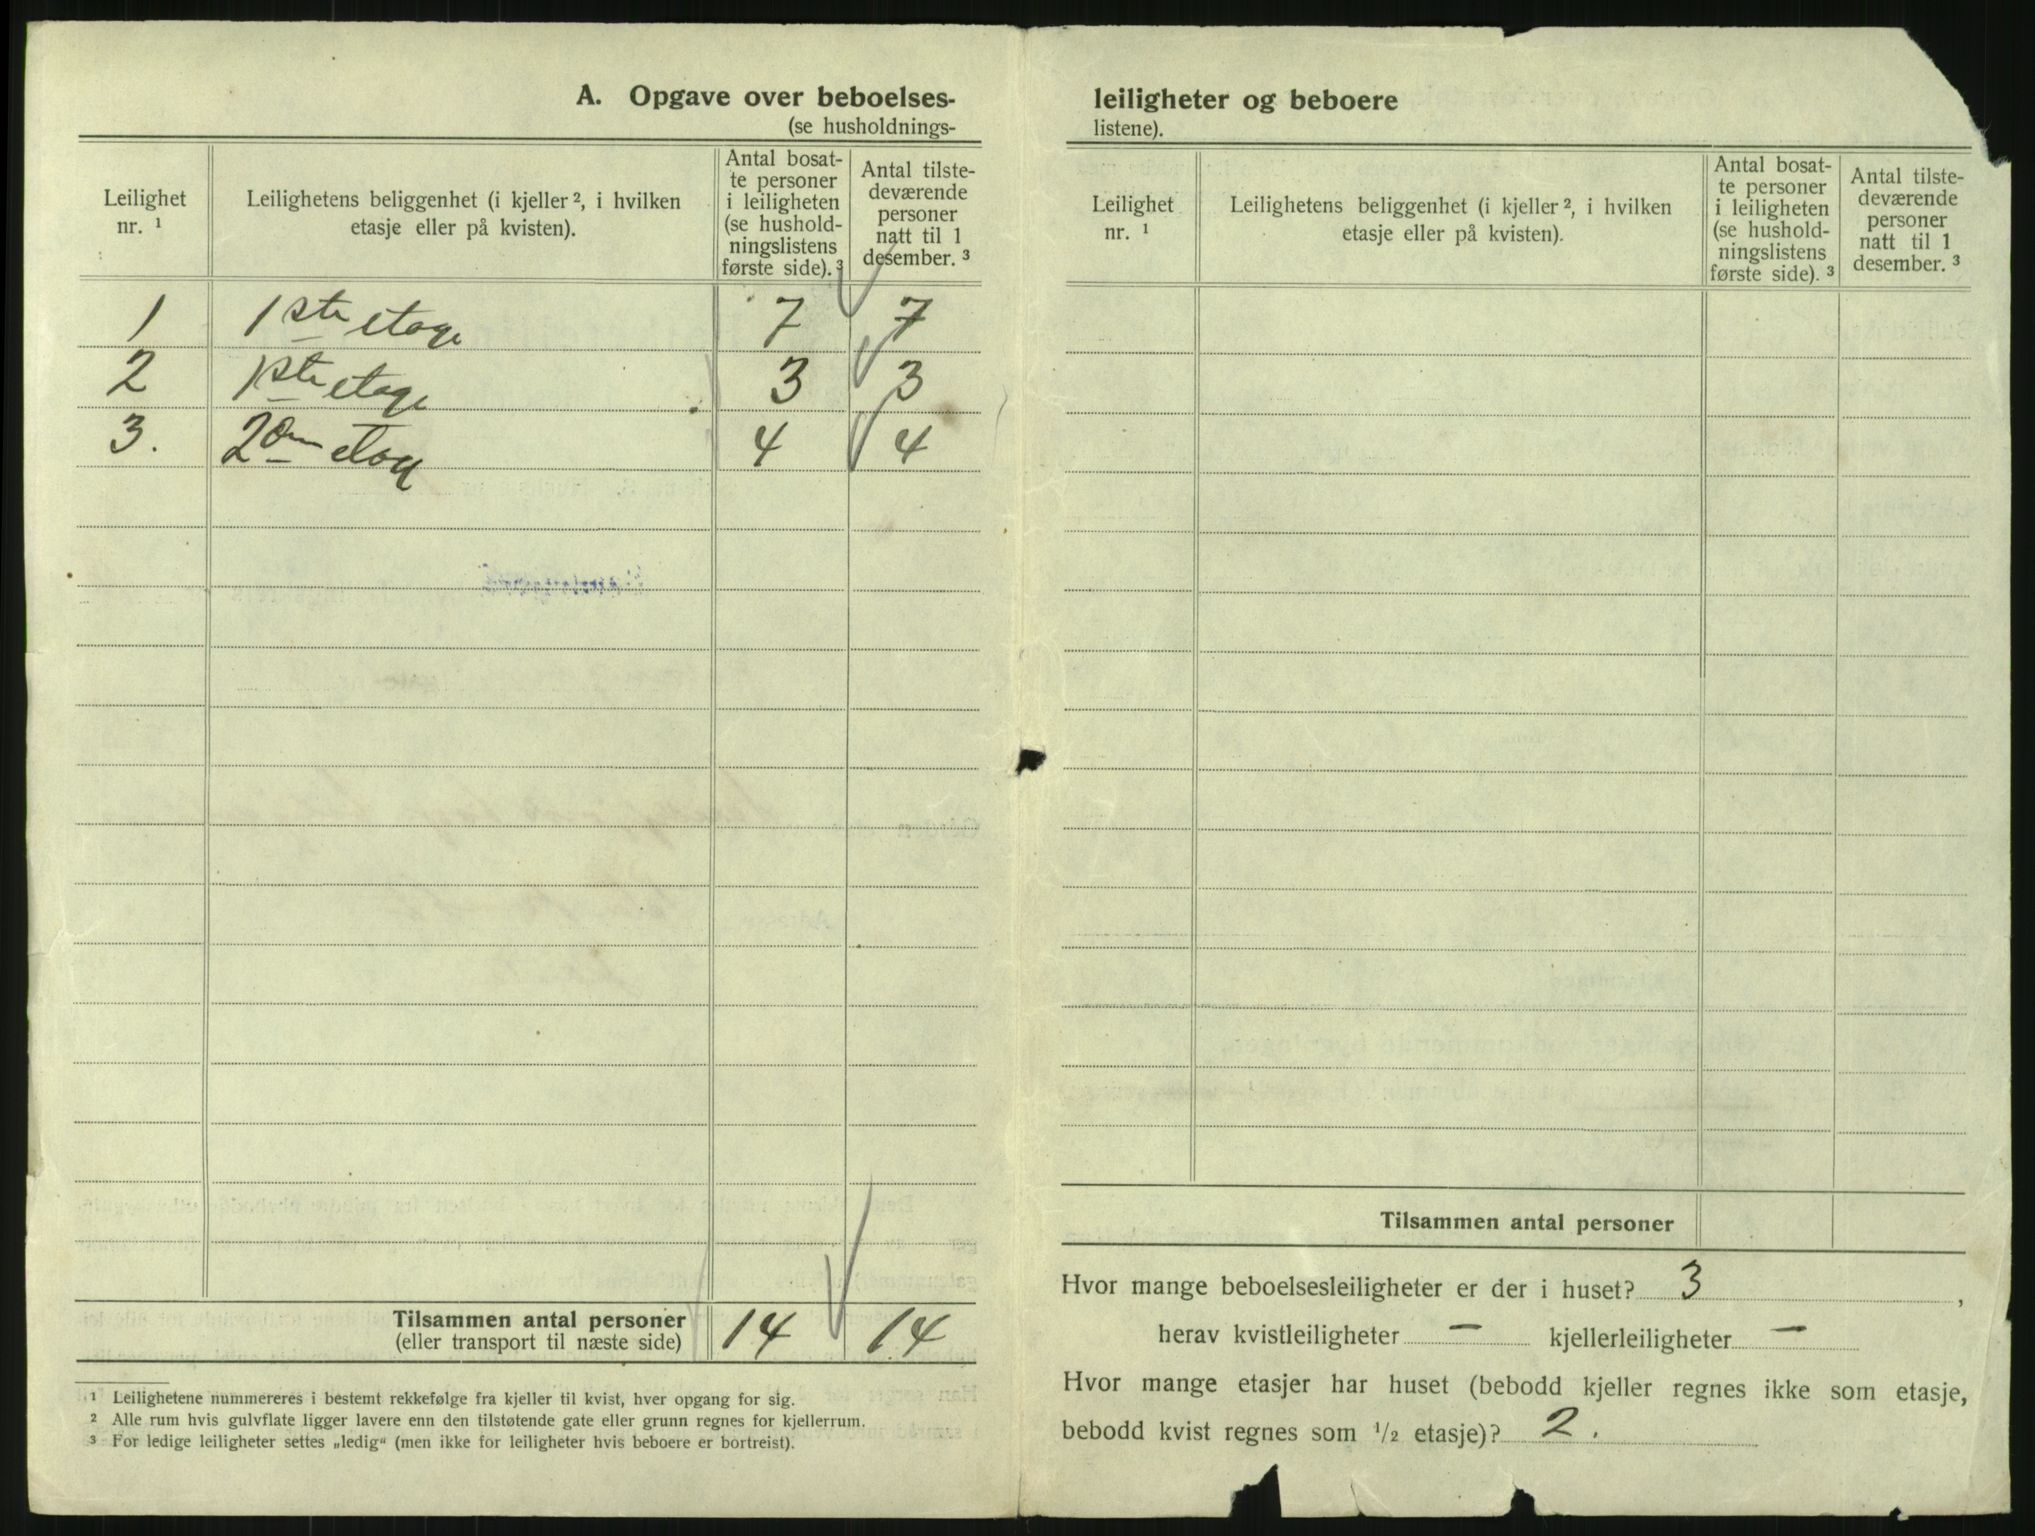 A. Opgave over beboelses-
(se husholdnings-
Leilighet nr. ¹
Leilighetens beliggenhet (i kjeller ², i hvilken etasje eller på kvisten).
Antal bosat-
te personer
i leiligheten
(se hushold-
ningslistens
første side). ³
Antal tilste-
deværende
personer
natt til 1
desember. ³
1 1ste etage 7 7
2 1ste etage 3 3
3. 2den etag 4 4
Tilsammen antal personer 14 14
(eller transport til næste side)
¹ Leilighetene nummereres i bestemt rekkefølge fra kjeller til kvist, hver opgang for sig.
² Alle rum hvis gulvflate ligger lavere enn den tilstøtende gate eller grunn regnes for kjellerrum.
³ For ledige leiligheter settes „ledig“ (men ikke for leiligheter hvis beboere er bortreist).
leiligheter og beboere
listene).
Leilighet
nr. ¹
Leilighetens beliggenhet (i kjeller ², i hvilken
etasje eller på kvisten).
Antal bosat-
te personer
i leiligheten
(se hushold-
ningslistens
første side). ³
Antal tilste-
deværende
personer
natt til 1
desember. ³
Tilsammen antal personer
Hvor mange beboelsesleiligheter er der i huset? 3 ,
herav kvistleiligheter – kjellerleiligheter –
Hvor mange etasjer har huset (bebodd kjeller regnes ikke som etasje,
bebodd kvist regnes som ½ etasje)? 2.